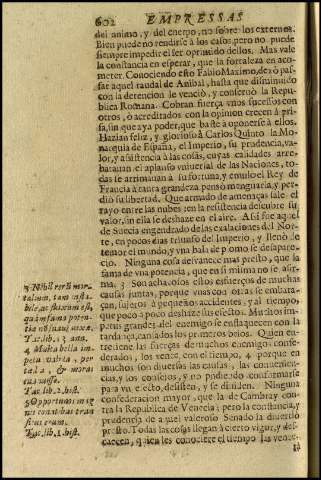 602 EMPRESSAS
del animo, y del cuerpo, no sobre los externos.
Bien puede no rendirse à los casos, pero no puede
siempre impedir el ser oprimido dellos. Mas vale
la constancia en esperar, que la fortaleza en aco-
meter. Conociendo esto Fabio Maximo, dexò pas-
sar aquel raudal de Anibal, hasta que disminuido
con la detencion le venciò, y conservò la Repu-
blica Romana. Cobran fuerça unos sucessos con
otros, ò acreditados con la opinion crecen à pri-
sa, sin que aya poder, que baste à oponerse à ellos.
Hazian feliz, y glorioso à Carlos Quinto la Mo-
narquia de España, el Imperio, su prudencia, va-
lor, y asistencia à las cosas, cuyas calidades arre-
batauan el aplauso universal de las Naciones, to-
das se arrimauan à su fortuna, y emulo el Rey de
Francia à tanta grandeza pensò menguarla, y per-
diò su libertad. Que armado de amenaças sale el
rayo entre las nubes, en la resistencia descubre su
valor, sin ella se deshaze en el aire. Assi fue aquel
de Suecia engendrado de las exalaciones del Nor-
te, en pocos dias triunfò del Imperio, y llenò de
temor el mundo, y vna bala de plomo se desapare-
cio. Ninguna cosa desvanece mas presto, que la
fama de vna potencia, que en si misma no se afir-
ma. 3 Son achacosos estos esfuerços de muchas
causas juntas, porque vnas con otras se embara-
çan, sugetos à pequeños accidentes, y al tiempo,
que poco à poco deshaze sus efectos. Muchos im-
petus grandes del enemigo se enflaquecen con la
tardança, cansados los primeros brios. Quien en-
tretiene las fuerças de muchos enemigos confe-
derados, los vence con el tiempo, 4 porque en
muchos son diversas las causas, las conveniencias
, y los consejos, y no pudiendo conformarse
para vn efeto, desisten, y se dividen. Ninguna
confederacion mayor, que la de Cambray con-
tra la Republica de Venecia; pero la constancia, y
prudencia de aquel valeroso Senado la divertiò
presto. Todas las cosas llegan à cierto vigor, y des-
caecen, quien les conociere el tiempo las vence-
rà
3 Nihil rerũ mor-
talium, tam insta-
bile, ac fluxum est,
quàm fama poten-
tiæ non suâ vi nixæ.
Tac. lib. 13. ann.
4 Multa bella im-
petu valida, per
tædia, & moras
euanuisse.
Tac. lib. 2. hist.
5 Opportunos mag-
nis conatibus tran-
situs rerum.
Tac. lib. 1. hist.